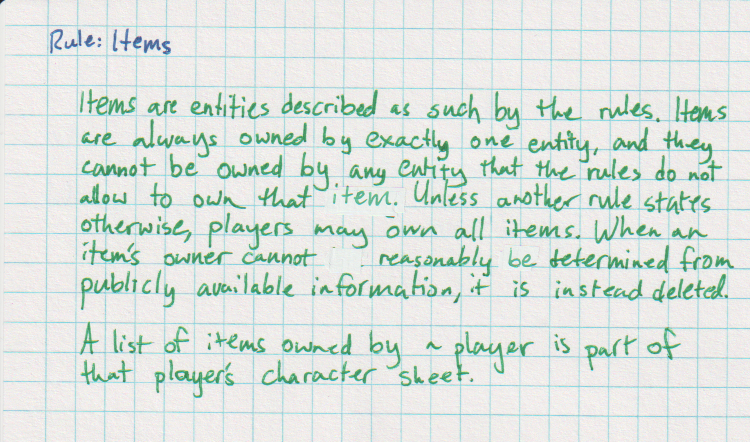 Rule: Items
Items are entities described as such by the rules. Items
are always owned by exactly one entity, and they
cannot be owned by any entity that the rules do not
allow to own that item. Unless another rule states
otherwise, players may own all items. When an
item's owner cannot reasonably be determined from
publicly available information, it is instead deleted.
A list of items owned by a player is part of
that player's character sheet.